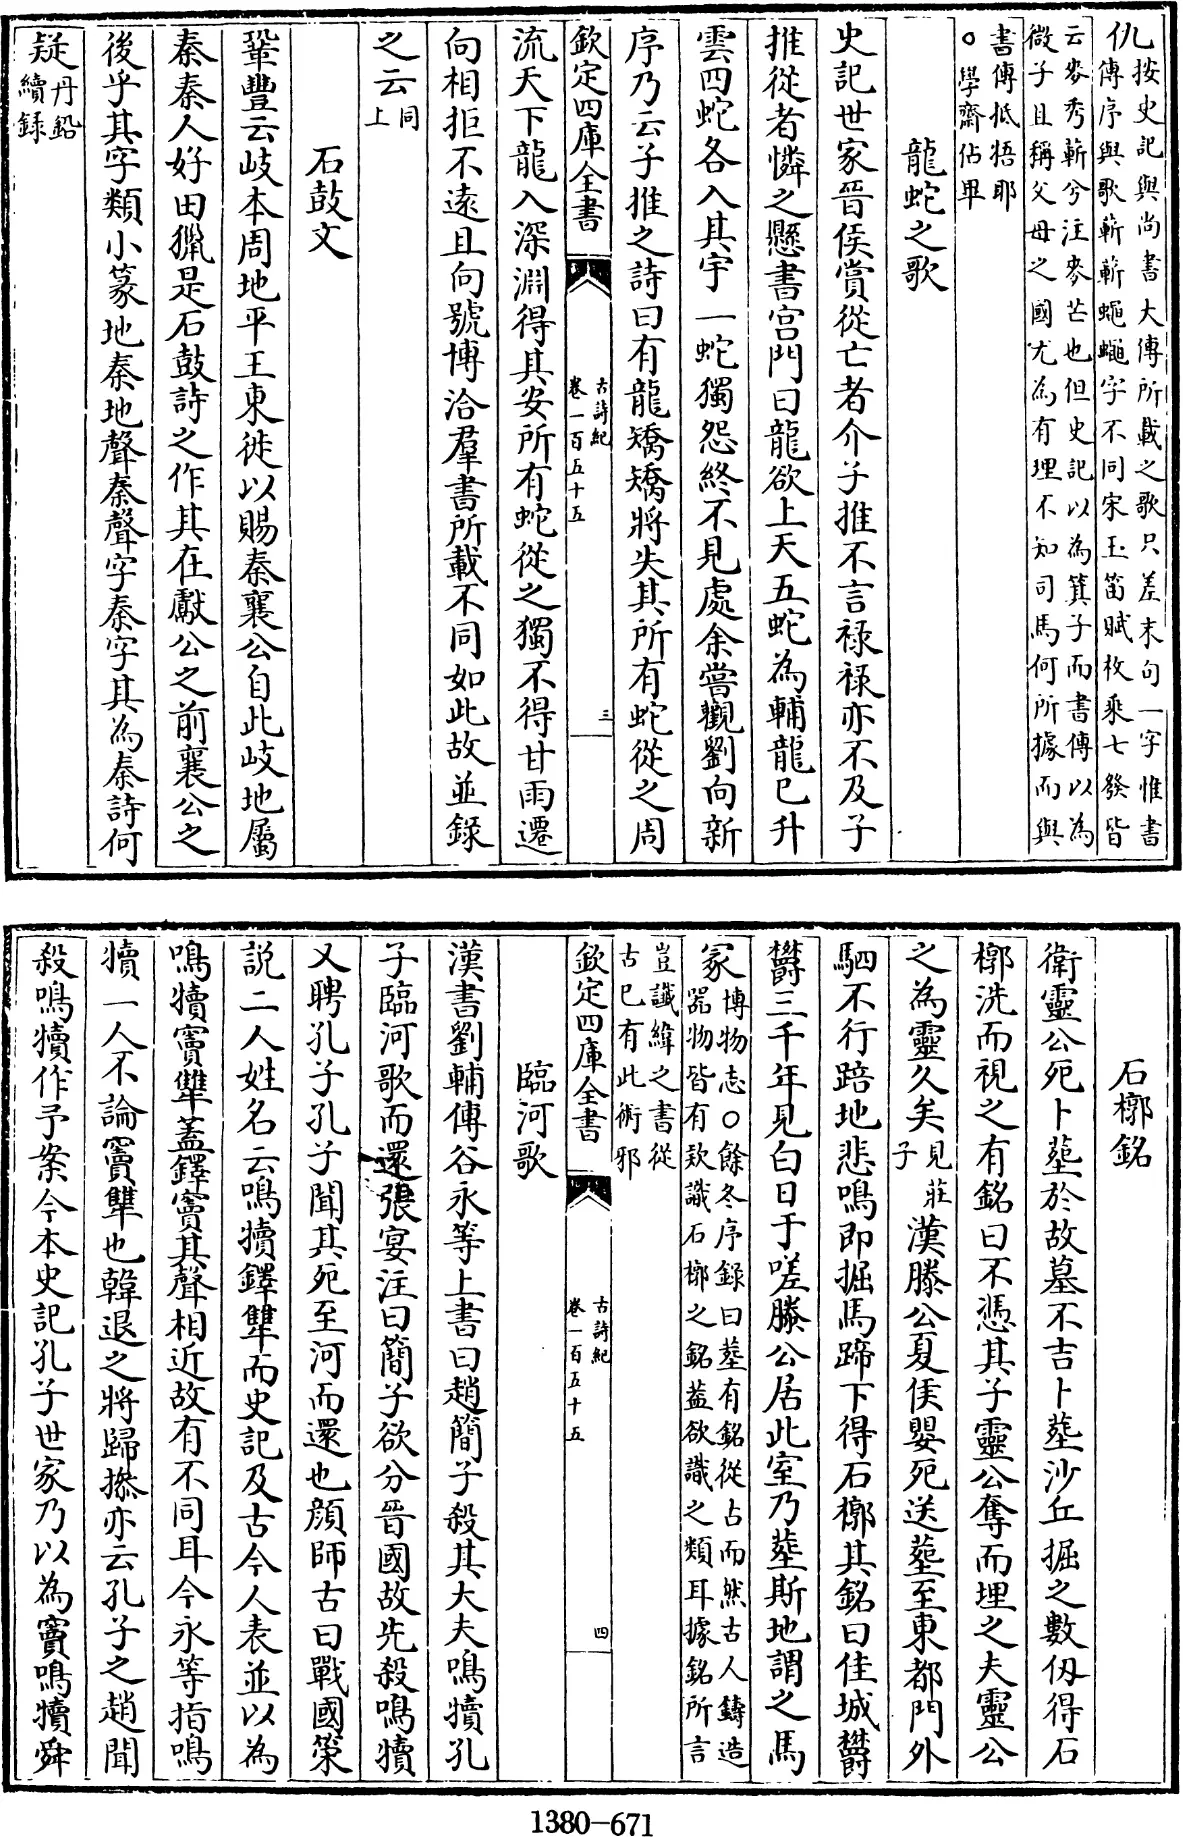 仇按史記與尚書大傳所載之歌只差末句一字惟書
傳序與歌蔪蔪蠅蠅字不同宋玉笛賦枚乘七發皆
云麥秀蔪兮注麥芒也但史記以為箕子而書傳以為
微子且稱父母之國尤為有理不知司馬何所據而與
書傳抵牾耶
○學齋佔畢
龍蛇之歌
史記世家晉侯賞從亡者介子推不言祿祿亦不及子
推從者憐之懸書宫門曰龍欲上天五蛇為輔龍已升
雲四蛇各入其宇一蛇獨怨終不見處余嘗觀劉向新
序乃云子推之詩曰有龍矯矯將失其所有蛇從之周
欽定四庫全書 古詩紀 卷一百五十五 三
流天下龍入深淵得其安所有蛇從之獨不得甘雨遷
向相拒不遠且向號博洽羣書所載不同如此故並録
之云同上
石鼓文
鞏豐云岐本周地平王東徙以賜秦襄公自此岐地屬
秦秦人好田獵是石鼓詩之作其在獻公之前襄公之
後乎其字類小篆地秦地聲秦聲字秦字其為秦詩何
疑丹鉛續録
石槨銘
衛靈公死卜塟於故墓不吉卜塟沙丘掘之數仭得石
槨洗而視之有銘曰不憑其子靈公奪而埋之夫靈公
之為靈久矣見莊子漢滕公夏侯嬰死送塟至東都門外
駟不行踣地悲鳴即掘馬蹄下得石槨其銘曰佳城欝
欝三千年見白日于嗟滕公居此室乃塟斯地謂之馬
冡博物志○餘冬序録曰塟有銘從占而然古人鑄造
器物皆有欵識石槨之銘葢欲識之類耳據銘所言
豈讖緯之書從
古已有此術邪
欽定四庫全書 古詩紀 卷一百五十五 四
臨河歌
漢書劉輔傳谷永等上書曰趙簡子殺其大夫鳴犢孔
子臨河歌而還張宴注曰簡子欲分晉國故先殺鳴犢
又聘孔子孔子聞其死至河而還也顔師古曰戰國策
說二人姓名云鳴犢鐸犨而史記及古今人表並以為
鳴犢竇犨蓋鐸竇其聲相近故有不同耳今永等指鳴
犢一人不論竇犨也韓退之將歸操亦云孔子之趙聞
殺鳴犢作予案今本史記孔子世家乃以為竇鳴犢舜
1380-671